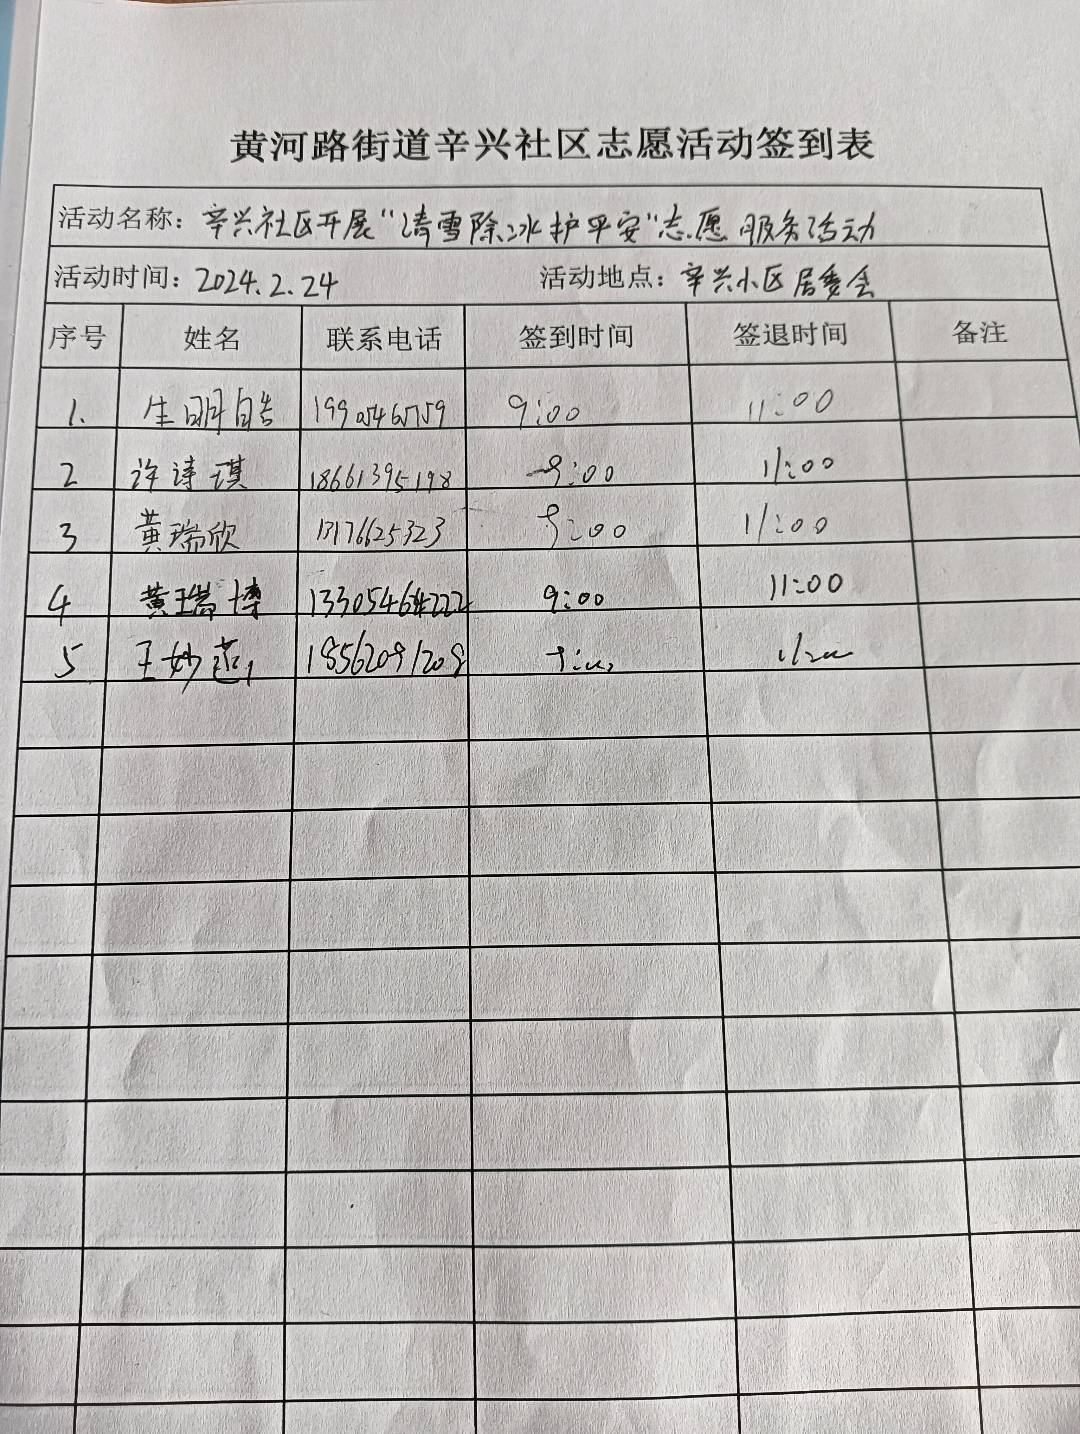 黄河路街道辛兴社区志愿活动签到表
活动名称：辛兴社区开展“清雪除冰护平安”志愿服务活动
活动时间：2024.2.24 活动地点：辛兴小区居委会
序号 姓名 联系电话 签到时间 签退时间 备注
1. 生明皓 9:00 11:00
2 许诗琪 18661395198 9:00 11:00
3 黄瑞欣 13176625323 9:00 11:00
4 黄瑞博 9:00 11:00
5 王妙 18562091208